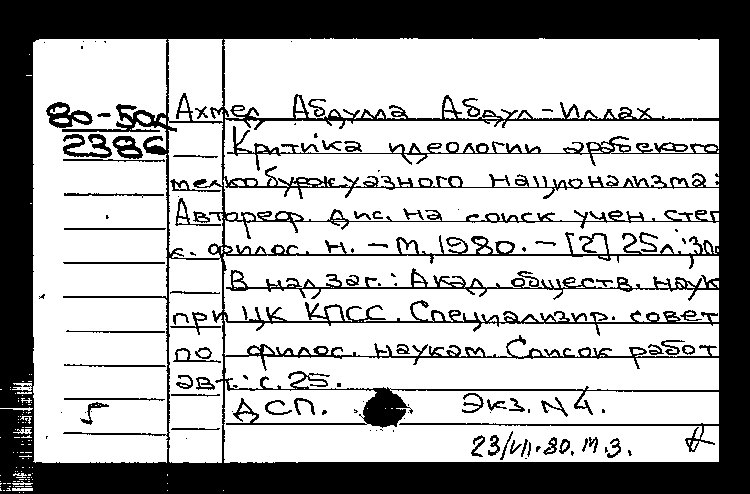 80-50к
2386
Ахмед Абдулла Абдул-Иллах.
Критика идеологии арабского
мелкобуржуазного национализма:
Автореф. дис. на соиск. учен. степ
к. филос. н. - М., 1980. - [2], 25л.; 30с
В надзаг.: Акад. обществ. наук
при ЦК КПСС. Специализир. совет
по филос. наукам. Список работ
авт.: с. 25.
ДСП. Экз. N 4.
23/VII-80. М.З.